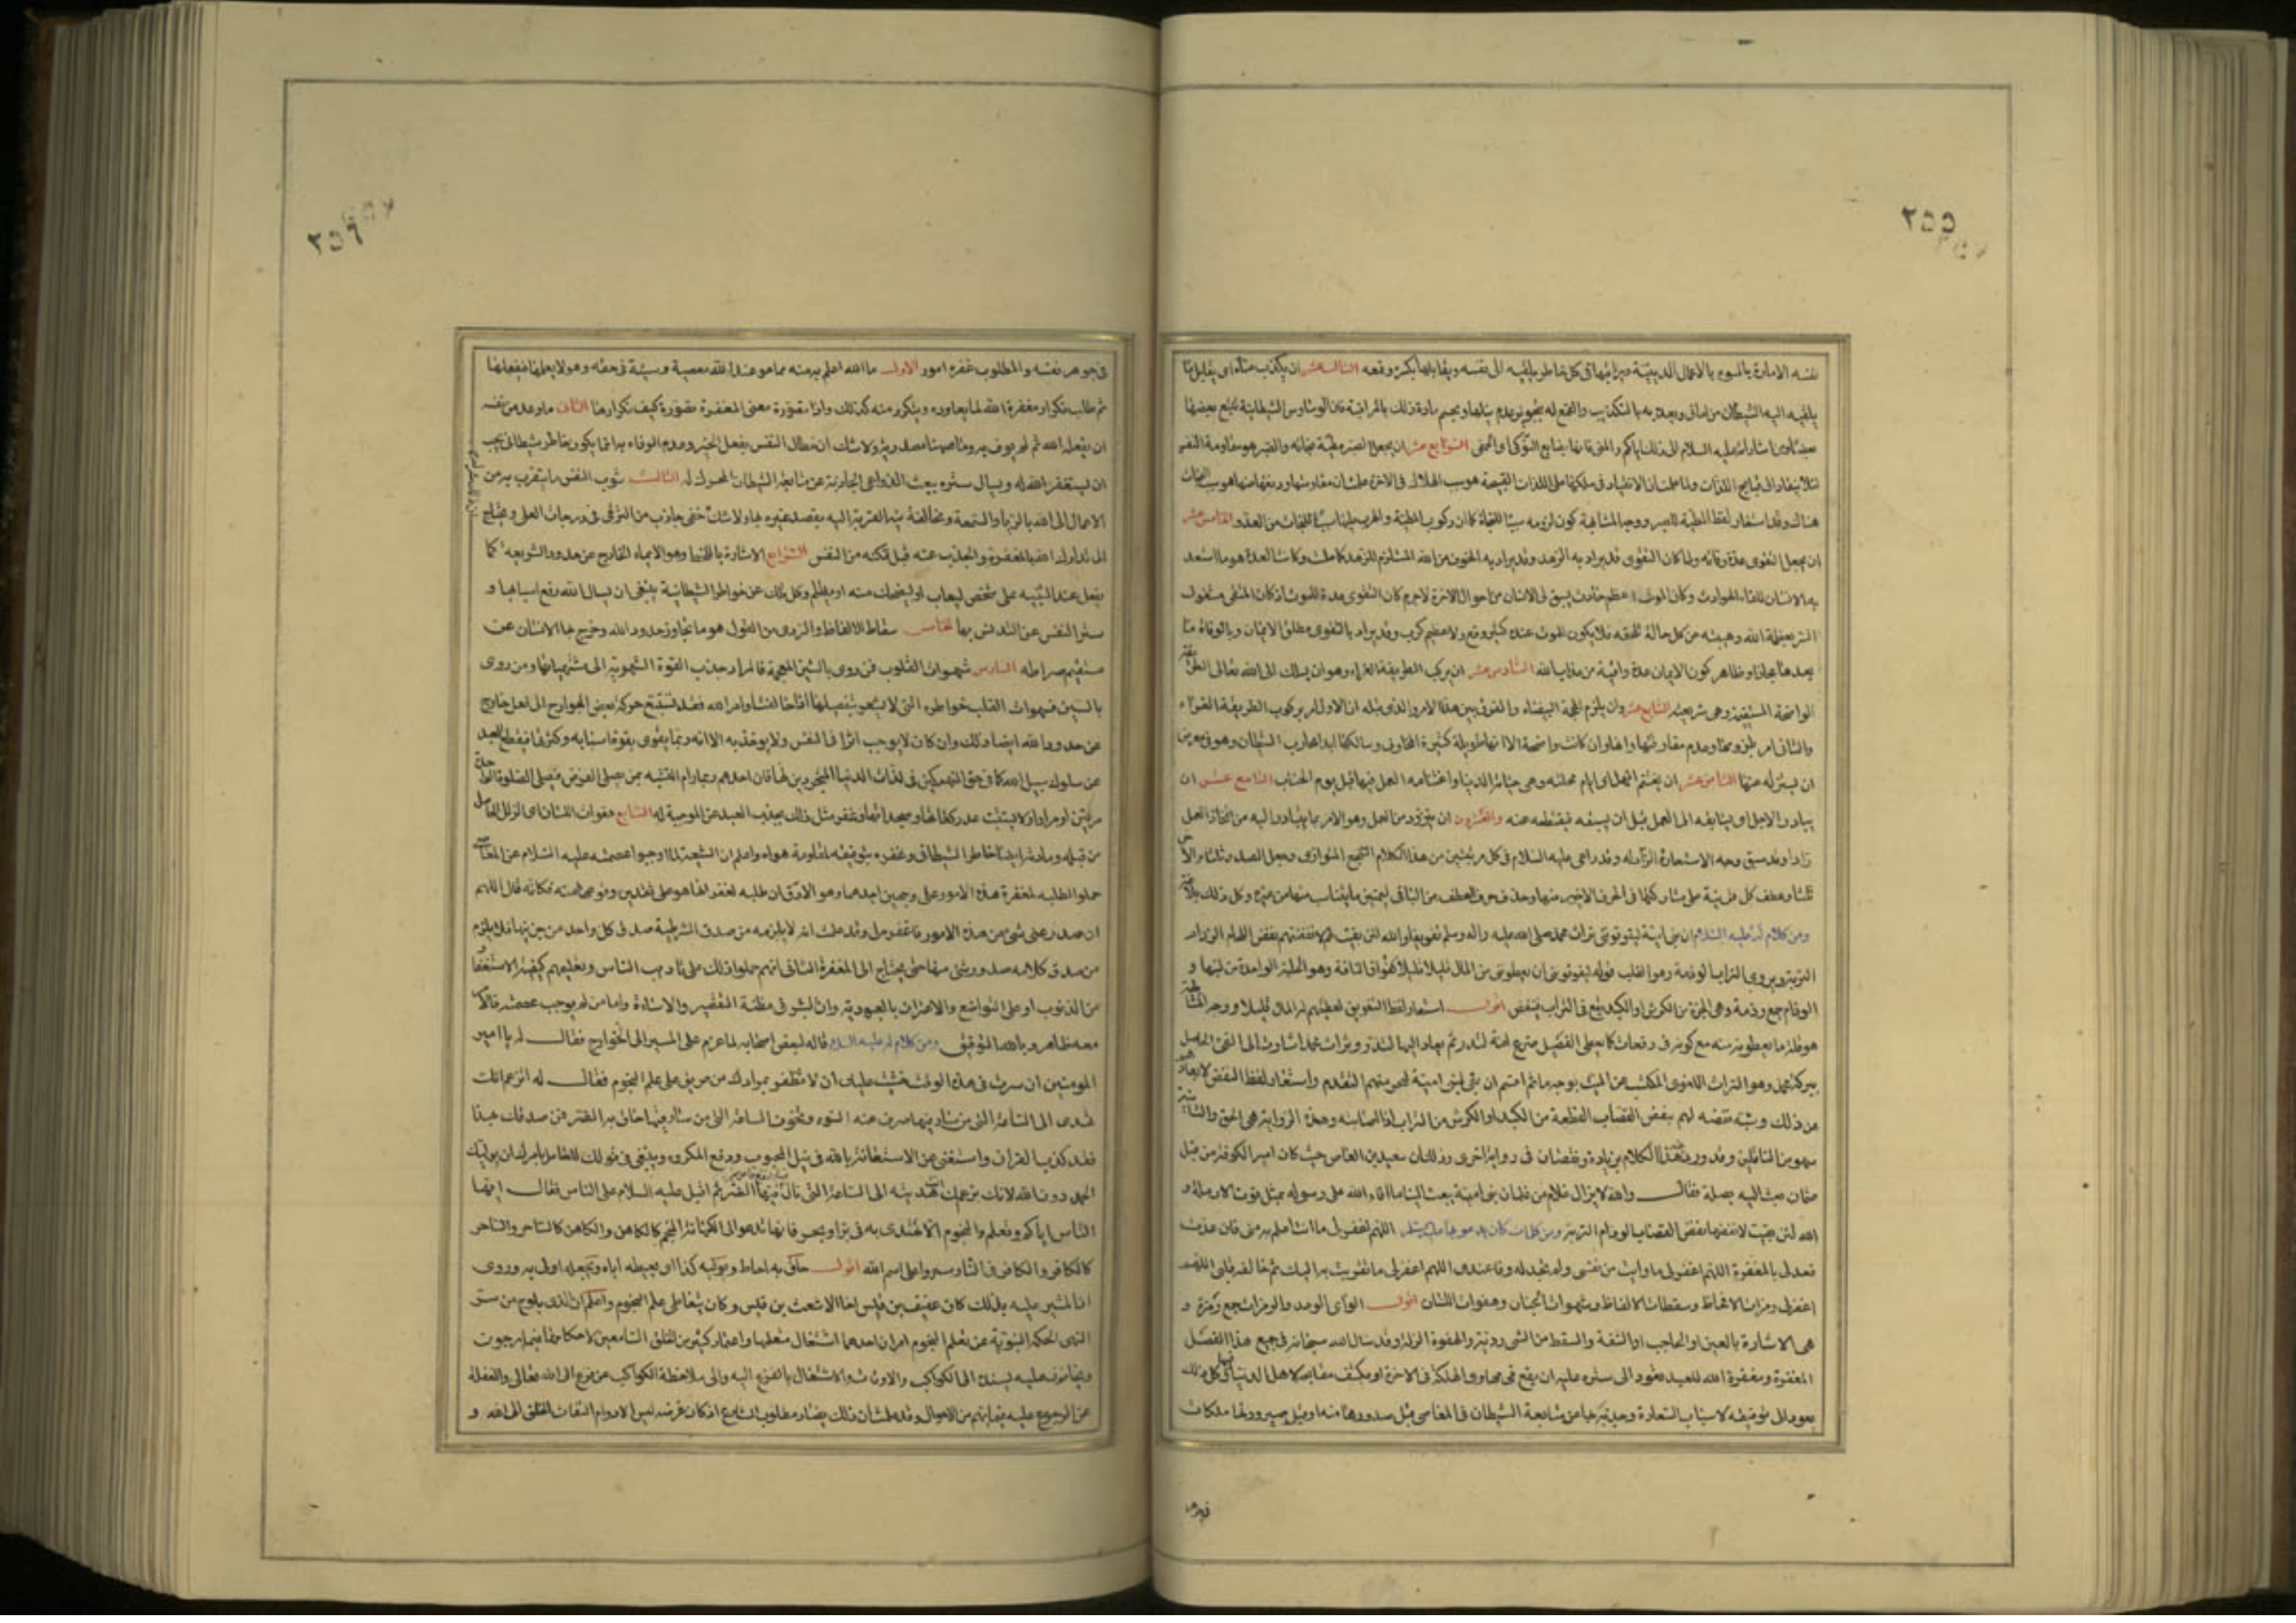 ٢٥٥
نفسه الامارة بالسوء بالاعمال الدينية ويراقبها في كل خاطر يلقيه الى نفسه ويقابلها بكسره وقمعه الثالث عشر ان يكذب مناه اي يقابل ما
يلقيه اليه الشيطان من اماني ويعده به بالتكذيب والقمع له بتجويز عدم نيلها ويحسم مادة ذلك بالمراقبة فان الوساوس الشيطانية يتبع بعضها
بعضا اشار عليه السلام الى ذلك اياكم والمنى فانها بضايع النوكى الرابع عشر ان يجعل الصبر مطية نجاته والصبر هو مقاومة النفس
لئلا ينقاد الى قبايح اللذات ولما علمت ان الانقياد في مسلكها الى اللذات القبيحة هو سبب الهلاك في الاخرة علمت ان مقاومتها ودفعها عنها هو سبب النجاة
هناك وقد استعار لفظ المطية للصبر ووجه المشابهة كون لزومه سببا للنجاة كما ان ركوب المطية والهرب عليها سببا للنجاة من العدو الخامس عشر
ان يجعل التقوى عدة وفاته ولما كان التقوى قد يراد به الزهد وقد يراد به الخوف من الله المستلزم للزهد كما علمت وكانت العدة هو ما استعد
به الانسان للقاء الحوادث وكان الموت اعظم حادث يسبق الى الانسان من احوال الاخرة لاجرم كان التقوى عدة للموت اذ كان المتقي مشغول
السر بعظمة الله وهيبته عن كل حالة تلحقه فلا يكون للموت عنده كثير وقع ولا عظيم كرب وقد يراد بالتقوى مطلق الايمان وبالوفاة ما
بعدها مجازا وظاهر كون الايمان عدة واقية من عذاب الله السادس عشر ان يركب الطريقة الغراء وهو ان يسلك الى الله تعالى الطريقة
الواضحة المستقيمة وهي شريعته السابع عشر وان يلزم المحجة البيضاء والفرق بين هذا الامر والذي قبله ان الاول امر بركوب الطريقة الغراء
والثاني امر بلزومها وعدم مفارقتها وانها وان كانت واضحة الا انها طويلة كثيرة المخاوف وسالكها ابدا محارب الشيطان وهو في معرض
ان يستزله عنها الثامن عشر ان يغتنم المهل اي ايام مهلته وهي حياته الدنيا واغتنامه العمل فيها قبل يوم الحساب التاسع عشر ان
يبادر الاجل اي يسابقه الى العمل قبل ان يسبقه فيقتطعه عنه والعشرون ان يتزود من العمل وهو الامر بما يبادر اليه من اتخاذ العمل
زادا وقد سبق وجه الاستعارة الزاد له وقد راعى عليه السلام في كل مرتبتين من هذا الكلام السجع المتوازي وجعل الصدر ثلثا والاخر
ثلثا وعطف كل قرينة على مشاركتها في الحرف الاخير منها وحذف حرف العطف من الباقي ليتميز ما يتناسب منها من غيره وكل ذلك بلاغة
ومن كلام له عليه السلام ان بني امية ليفوقونني تراث محمد صلى الله عليه واله وسلم تفويقا والله لئن بقيت لهم لانفضنهم نفض اللحام الوذام
التربة ويروى التراب الوذمة وهو القلب قوله ليفوقونني اي يعطونني من المال قليلا قليلا كفواق الناقة وهو الحلبة الواحدة من لبنها و
الوذام جمع وذمة وهي الحزة من الكرش او الكبد يقع في التراب فينفض اقول استعار لفظ التفويق لعطيتهم له المال قليلا ووجه المشابهة
هو قلة ما يعطونه منه مع كونه في دفعات كما يعطى الفصيل ضرع امه لتدر ثم يعاد اليها لتدر وتراث محمد اشارة الى الفيء الحاصل
ببركة محمد وهو التراث اللغوي المكتسب عن الميت بوجه ما ثم اقسم ان بقي لبني امية ليحرمنهم التقدم واستعار لفظ النفض لابعادهم
عن ذلك وشبه نفضه لهم بنفض القصاب القطعة من الكبد او الكرش من التراب اذا اصابته وهذه الرواية هي الحق والثانية
سهو من الناقلين وقد وردت هذا الكلام بزيادة ونقصان في رواية اخرى وذلك ان سعيد بن العاص حيث كان امير الكوفة من قبل
عثمان بعث اليه بصلة فقال والله لا يزال غلام من غلمان بني امية يبعث الينا ما افاء الله على رسوله بمثل قوت الارملة و
الله لئن بقيت لانفضنها نفض القصاب الوذام التربة ومن كلمات كان يدعو بها عليه السلام اللهم اغفر لي ما انت اعلم به مني فان عدت
فعد لي بالمغفرة اللهم اغفر لي ما وايت من نفسي ولم تجد له وفاء عندي اللهم اغفر لي ما تقربت به اليك ثم خالفه قلبي اللهم
اغفر لي رمزات الالحاظ وسقطات الالفاظ وشهوات الجنان وهفوات اللسان اقول الواي الوعد والرمزات جمع رمزة و
هي الاشارة بالعين او الحاجب او الشفة والسقط من الشيء رديئه والهفوة الزلة وقد سال الله سبحانه في جميع هذا الفصل
المغفرة ومغفرة الله للعبد تعود الى ستره عليه ان يقع في مهاوي الهلكة في الاخرة او يكشف مقابحه لاهل الدنيا وكل ذلك
يعود الى توفيقه لاسباب السعادة وجذبه بها عن متابعة الشيطان في المعاصي قبل صدورها منه او قبل صيرورتها ملكات
٢٥٦
في جوهر نفسه والمطلوب غفره امور الاول ما الله اعلم به منه مما هو عند الله معصية وسيئة في حقه وهو لا يعلمها فيفعلها
ثم طلب تكرار مغفرة الله لما يعاوده ويتكرر منه كذلك واذا تصورة معنى المغفرة تصورة كيف تكرارها الثاني ما وعد من نفسه
ان يفعله لله ثم لم يوف به وما ههنا مصدرية ولا شك ان مطال النفس بفعل الخير وعدم الوفاء به انما يكون بخاطر شيطاني يجب
ان يستغفر الله له ويسال ستره ببعث الدواعي الجاذبة عن متابعة الشيطان المحرك له الثالث شوب النفس ما يتقرب به من
الاعمال الى الله بالرياء والسمعة ومخالفة نية القربة اليه بقصد غيره بها ولا شك انه شرك خفي جاذب من الترقي في درجات العلى ويحتاج
الى تدارك الله بالمغفرة والجذب عنه قبل تمكنه من النفس الرابع الاشارة باللحظ وهو الايماء الخارج عن حدود الشريعة كما
يفعل عند التنبيه على شخص ليعاب او ليضحك منه او يظلم وكل ذلك عن خواطر الشيطانية ينبغي ان يسال الله رفع اسبابها و
ستر النفس عن التدنس بها الخامس سقاط الالفاظ والردي من القول هو ما تجاوز حدود الله وخرج بها الانسان عن
مستقيم صراطه السادس شهوات القلوب فمن روى بالشين المعجمة فالمراد جذب القوة الشهوية الى مشتهياتها ومن روى
بالسين فسهوات القلب خواطره التي لا يشعر بتفصيلها اذا خالفت اوامر الله فقد تستتبع حركة بعض الجوارح الى فعل خارج
عن حدود الله ايضا وذلك وان كان لا يوجب اثرا في النفس ولا يؤخذ به الا انه ربما يقوى بقوة اسبابه وكثرتها فيقطع العبد
عن سلوك سبيل الله كما في حق المنهمكين في لذات الدنيا المتجردين لها فان احدهم ربما رام التشبه بمن يصلي الفرض فيصلي الصلوة الواحدة
مرتين او مرارا ولا يستثبت عدد ركعاتها وسجداتها وغفر مثل ذلك بجذب العبد عن الموجبة له السابع هفوات اللسان اي الزلل الحاصل
من قبله ومادته ايضا خاطر الشيطاني وغفره بتوفيقه لمقاومة هواه واعلم ان الشيعة لما اوجبوا عصمته عليه السلام عن المعاصي
حملوا طلبه لمغفرة هذه الامور على وجهين احدهما وهو الادق ان طلبه لغفرانها هو على تقدير وقوعها منه فكانه قال اللهم
ان صدر عني شيء من هذه الامور فاغفره لي وقد علمت انه لا يلزمه من صدق الشرطية صدق كل واحد من جزئيها فلا يلزم
من صدق كلامه صدور شيء منها حتى يحتاج الى المغفرة الثاني انهم حملوا ذلك على تاديب الناس وتعليمهم كيفية الاستغفار
من الذنوب او على التواضع والاعتراف بالعبودية وان البشر في مظنة التقصير والاساءة واما من لم يوجب عصمته فالامر
معه ظاهر وبالله التوفيق ومن كلام له عليه السلام قاله لبعض اصحابه لما عزم على المسير الى الخوارج فقال له يا امير
المؤمنين ان سرت في هذا الوقت خشيت عليك ان لا تظفر بمرادك من طريق علم النجوم فقال له اتزعم انك
تهدي الى الساعة التي من سار فيها صرف عنه السوء وتخوف الساعة التي من سار فيها حاق به الضر فمن صدقك بهذا
فقد كذب القران واستغنى عن الاستعانة بالله في نيل المحبوب ودفع المكروه وينبغي في قولك للعامل بامرك ان يوليك
الحمد دون الله لانك بزعمك انت هديته الى الساعة التي نال فيها النفع وامن الضر ثم اقبل عليه السلام على الناس فقال ايها
الناس اياكم وتعلم النجوم الا ما يهتدى به في بر او بحر فانها تدعو الى الكهانة المنجم كالكاهن والكاهن كالساحر والساحر
كالكافر والكافر في النار سيروا على اسم الله اقول حاق به احاط ويوليه كذا اي يعطيه اياه ويجعله اولى به وروي
ان المشير عليه بذلك كان عفيف بن قيس اخا الاشعث بن قيس وكان يتعاطى علم النجوم واعلم ان الذي يلوح من سر
النهي الحكمة النبوية عن تعلم النجوم امران احدهما اشتغال متعلمها واعتماد كثير من الخلق السامعين لاحكامها فيما يرجون
ويخافون عليه يسنده الى الكواكب والاوقات والاشتغال بالفزع اليه والى ملاحظة الكواكب عن فزع الى الله تعالى والغفلة
عن الرجوع عليه فيما يهم من الاحوال وقد علمت ان ذلك يضاد مطلوب الشارع اذ كان غرضه ليس الا دوام التفات الخلق الى الله و